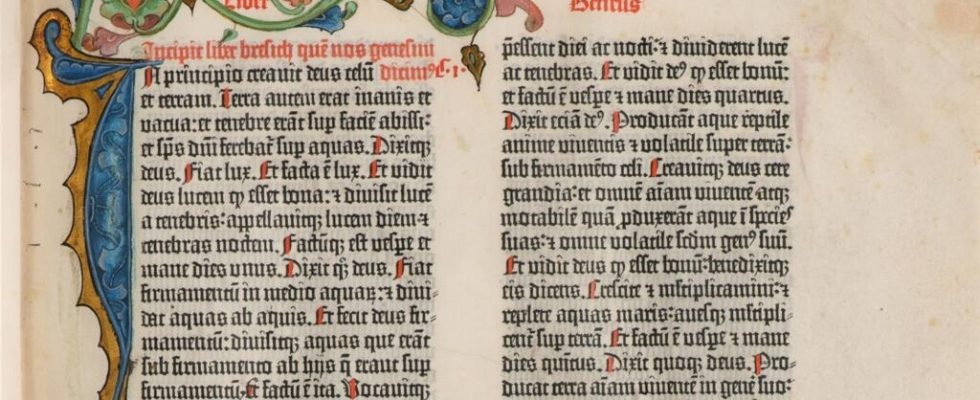 Liber
Genesis
Incipit liber bresich quē nos genesim
In principio creavit deus celū dicim⁹ C.1.
et terram. Terra autem erat inanis et
vacua: et tenebre erāt sup faciē abissi:
et sp̄s dn̄i ferebat̄ sup aquas. Dixitqꝫ
deus. Fiat lux. Et facta ē lux. Et vidit
deus lucem ꝙ esset bona: ⁊ divisit lucē
a tenebris: appellavitqꝫ lucem diem ⁊
tenebras noctem. Factūqꝫ est vespe et
mane dies unus. Dixit qꝫ deus. Fiat
firmamentū in medio aquaꝝ: ⁊ divi-
dat aquas ab aquis. Et fecit deus fir-
mamentū: divisitqꝫ aquas que erāt
sub firmamento ab hijs q̄ erant sup
firmamentū. Et factū ē ita. Vocavitqꝫ
p̄essent diei ac nocti: ⁊ dividerent lucē
ac tenebras. Et vidit de⁹ ꝙ esset bonū:
et factū ē vespe ⁊ mane dies quartus.
Dixit eciā de⁹. Producāt aque reptile
anime viventis ⁊ volatile super terrā:
sub firmamēto celi. Creavitqꝫ deus cete
grandia: et omnē aīam viventē atqꝫ
motabilem quā pduxerāt aque ī species
suas: ⁊ omne volatile scdm gen⁹ suū.
Et vidit deus ꝙ esset bonū: benedixitqꝫ
eis dicens. Crescite ⁊ mltiplicamini: ⁊
replete aquas maris: avesqꝫ mltipli-
cent̄ sup terrā. Et factū ē vespe ⁊ mane
dies quītus. Dixit quoqꝫ deus. Pro-
ducat terra aīam viventē in gene suo: